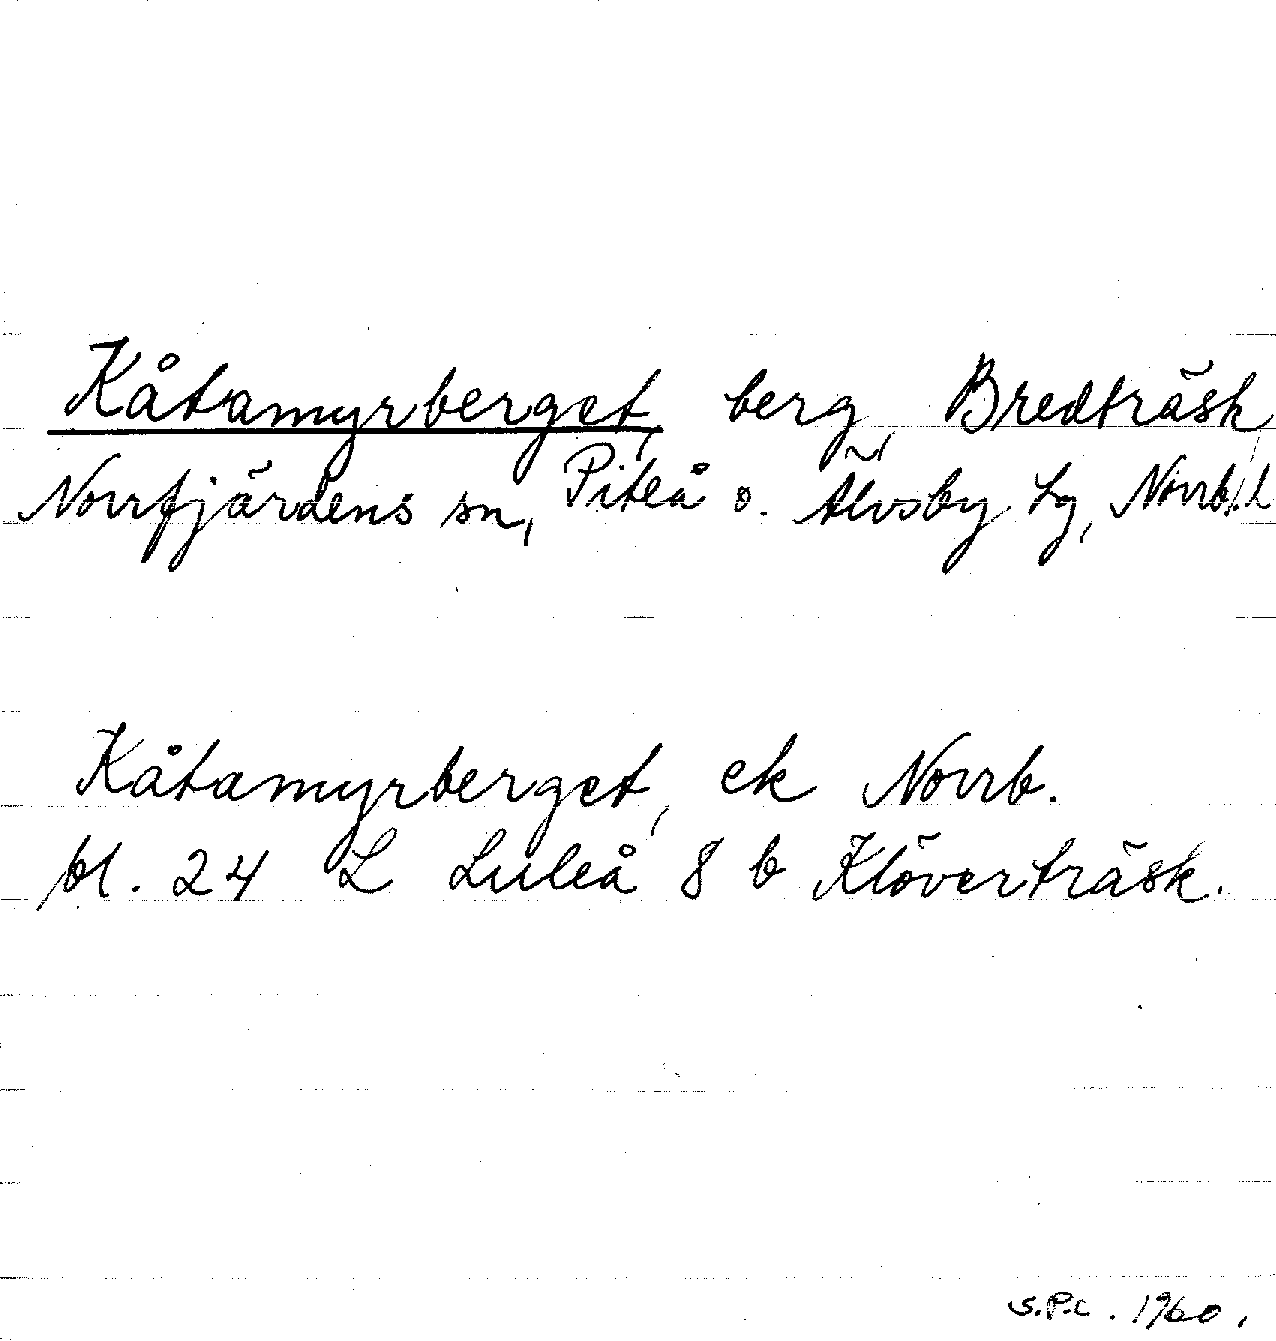 Kåtamyrberget, berg, Bredträsk,
Norrfjärdens sn, Piteå o. Älvsby tg, Norrb. l
Kåtamyrberget, ek Norrb.
bl. 24 L Luleå 8 b Klöverträsk.
S.P.C. 1960.